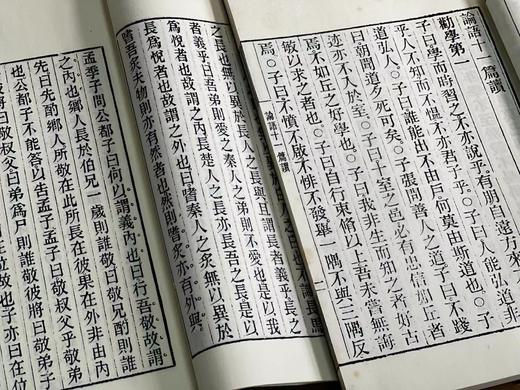 論語十一篇讀
勸學第一
子曰學而時習之不亦說乎。有朋自遠方來
乎人不知而不慍不亦君子乎。子曰人能弘道非
道弘人。子曰誰能出不由戶何莫由斯道也。子
曰朝聞道夕死可矣。子張問善人之道子曰不踐
迹亦不入於室。子曰十室之邑必有忠信如丘者
焉不如丘之好學也。子曰我非生而知之者好古
敏以求之者也。子曰自行束脩以上吾未嘗無誨
焉。子曰不憤不啟不悱不發舉一隅不與三隅反
論語
之長也無以異於長人之長與且謂長者義乎長之
者義乎曰吾弟則愛之秦人之弟則不愛也是以我
爲悅者也故謂之內長楚人之長亦長吾之長是以
長爲悅者也故謂之外也曰嗜秦人之炙無以異於
嗜吾炙夫物則亦有然者也然則嗜炙亦有外與。
孟季子問公都子曰何以謂義內也曰行吾敬故謂
之內也鄉人長於伯兄一歲則誰敬曰敬兄酌則誰
先曰先酌鄉人所敬在此所長在彼果在外非由內
也公都子不能答以告孟子孟子曰敬叔父乎敬弟
彼將曰敬叔父曰弟爲尸則誰敬彼將曰敬弟子
在位故也子亦曰在位